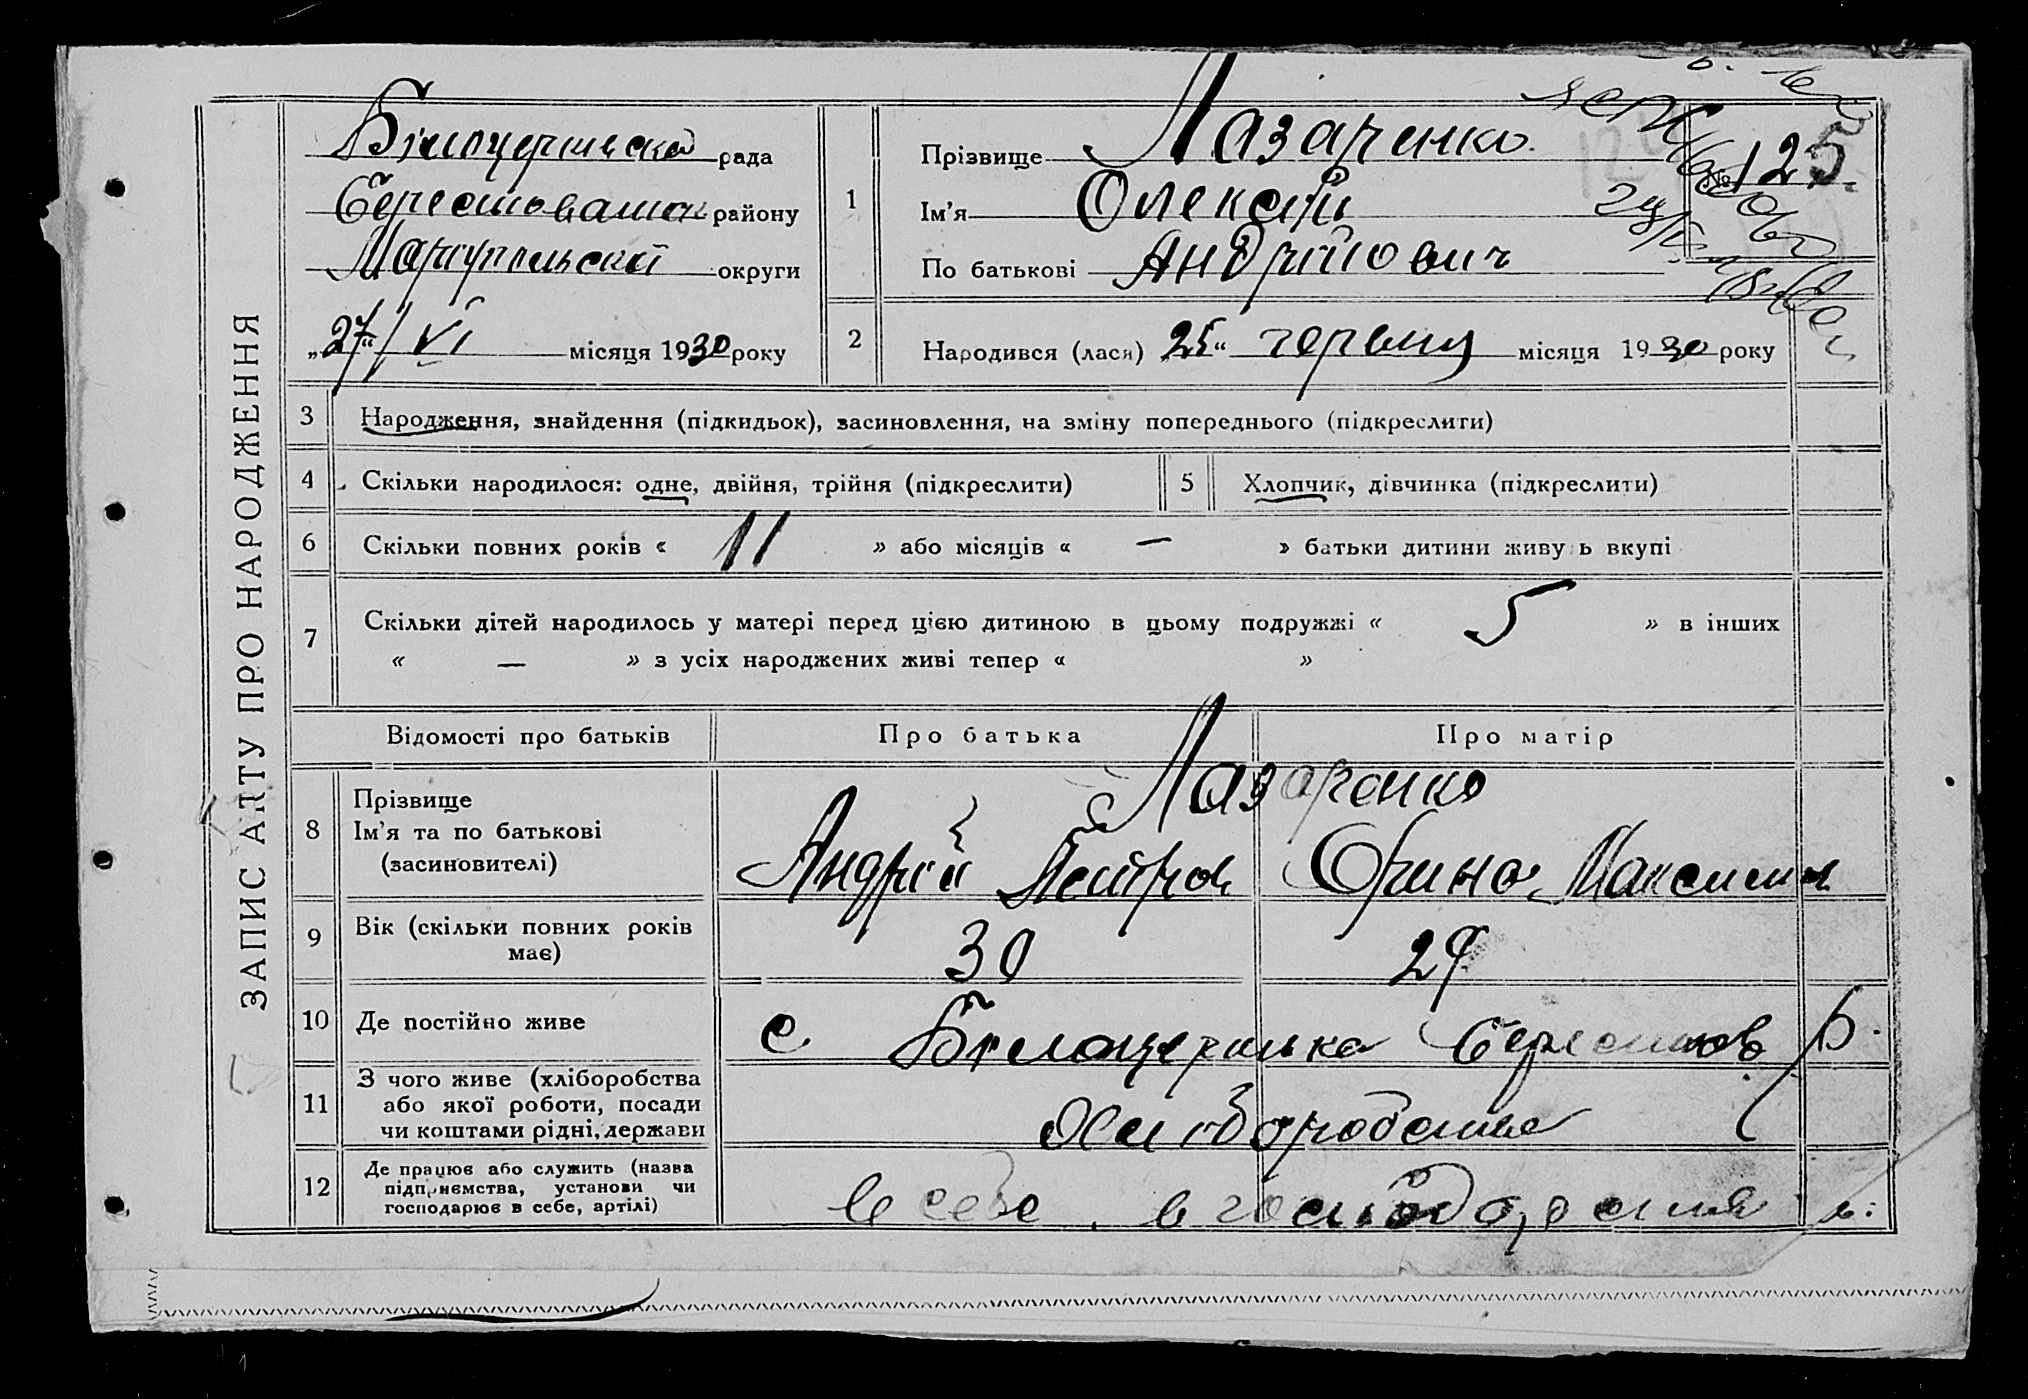 ЗАПИС АКТУ ПРО НАРОДЖЕННЯ
Білоцерківська рада
Берестовашськ району
Маріупільської округи
„27“ VI місяця 1930 року
1
Прізвище Лазаренко
Ім'я Олексій
По батькові Андрійович
№ 125
2
Народився (лася) „25“ червня місяця 1930 року
3 Народження, знайдення (підкидьок), засиновлення, на зміну попереднього (підкреслити)
4 Скільки народилося: одне, двійня, трійня (підкреслити)
5 Хлопчик, дівчинка (підкреслити)
6 Скільки повних років « 11 » або місяців « — » батьки дитини живуть вкупі
7 Скільки дітей народилось у матері перед цією дитиною в цьому подружжі « 5 » в інших
« — » з усіх народжених живі тепер « »
Відомості про батьків Про батька Про матір
8 Прізвище
Ім'я та по батькові
(засиновителі)
Лазаренко
Андрій Петров Орина Максимів
9 Вік (скільки повних років
має)
30 29
10 Де постійно живе
с Білоцерківка Берестов р.
11 З чого живе (хліборобства
або якої роботи, посади
чи коштами рідні, держави
Хліборобства
12 Де працює або служить (назва
підприємства, установи чи
господарює в себе, артілі)
в себе в